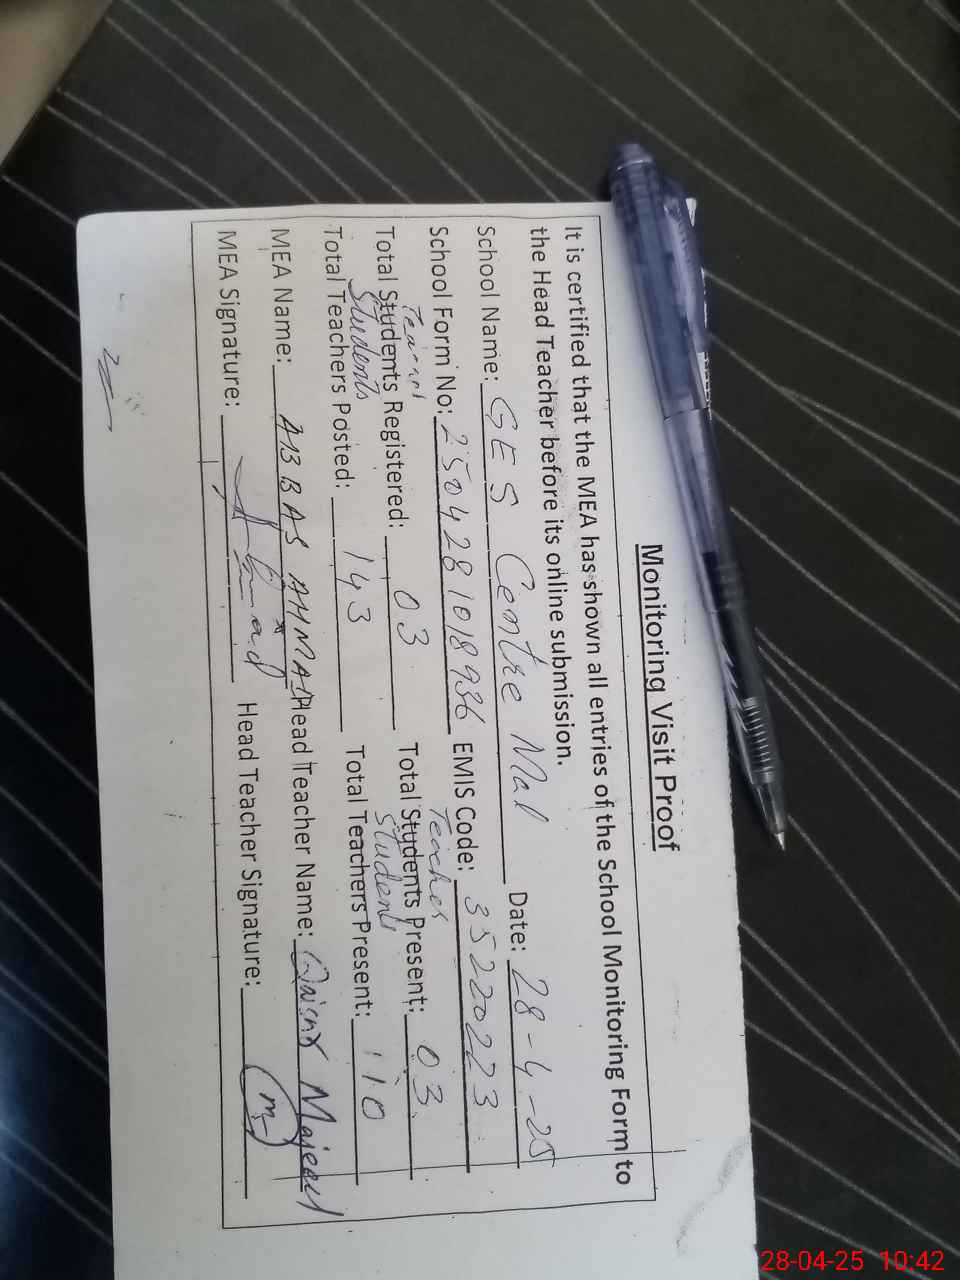 Monitoring Visit Proof
It is certified that the MEA has shown all entries of the School Monitoring Form to
the Head Teacher before its online submission.
School Name: GES Centre Mal Date: 28-4-25
School Form No: 2504281018936 EMIS Code: 35220223
Teacher Teacher
Total Students Registered: 03 Total Students Present: 03
Students Students
Total Teachers Posted: 143 Total Teachers Present: 110
MEA Name: ABBAS AHMAD Head Teacher Name: Majeed
MEA Signature: Head Teacher Signature:
28-04-25 10:42